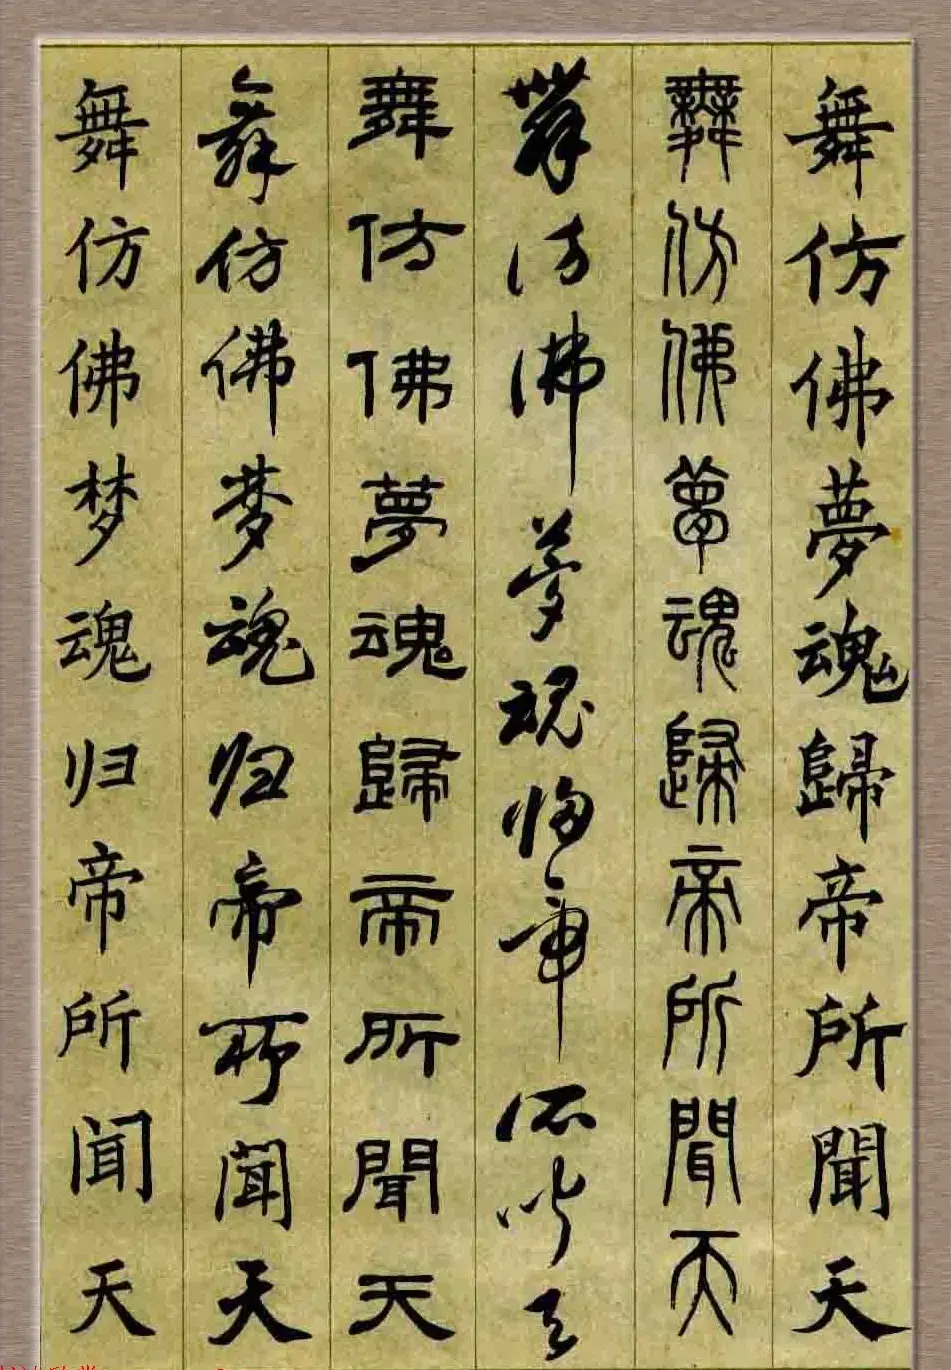 舞仿佛夢魂歸帝所聞天
舞仿佛夢魂歸帝所聞天
舞仿佛夢魂歸帝所聞天
舞仿佛夢魂歸帝所聞天
舞仿佛梦魂归帝所闻天
舞仿佛梦魂归帝所闻天